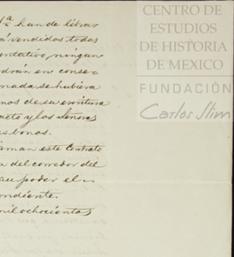 1ª han de librar
vendidos todos
ningun
drán en conse
nada se hubiera
nos de su escritura
y los Señores
bonos.
man este Contrato
del corredor del
su poder el
ndiente.
mil ochocientos
CENTRO DE
ESTUDIOS
DE HISTORIA
DE MEXICO
FUNDACIÓN
Carlos Slim